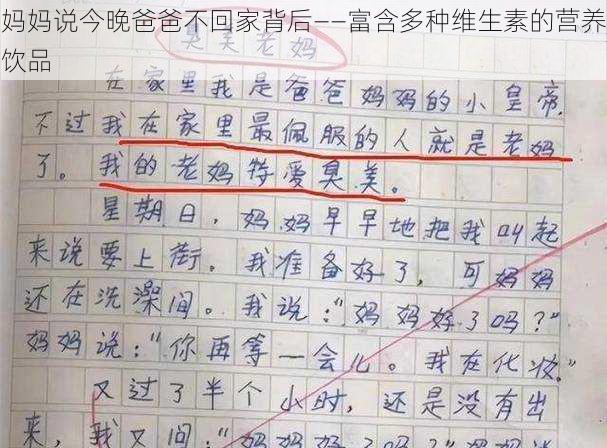 妈妈说今晚爸爸不回家背后——富含多种维生素的营养
饮品
臭美老妈
在家里我是爸爸妈妈的小皇帝,
不过我在家里最佩服的人就是老妈
了。我的老妈特爱臭美。
星期日,妈妈早早地把我叫起
来说要上街。我准备好了,可妈妈
还在洗澡间。我说:“妈妈好了吗?”
妈妈说:“你再等一会儿。我在化妆。”
又过了半个小时,还是没有出
来,我又问:“妈妈好了吗?”妈